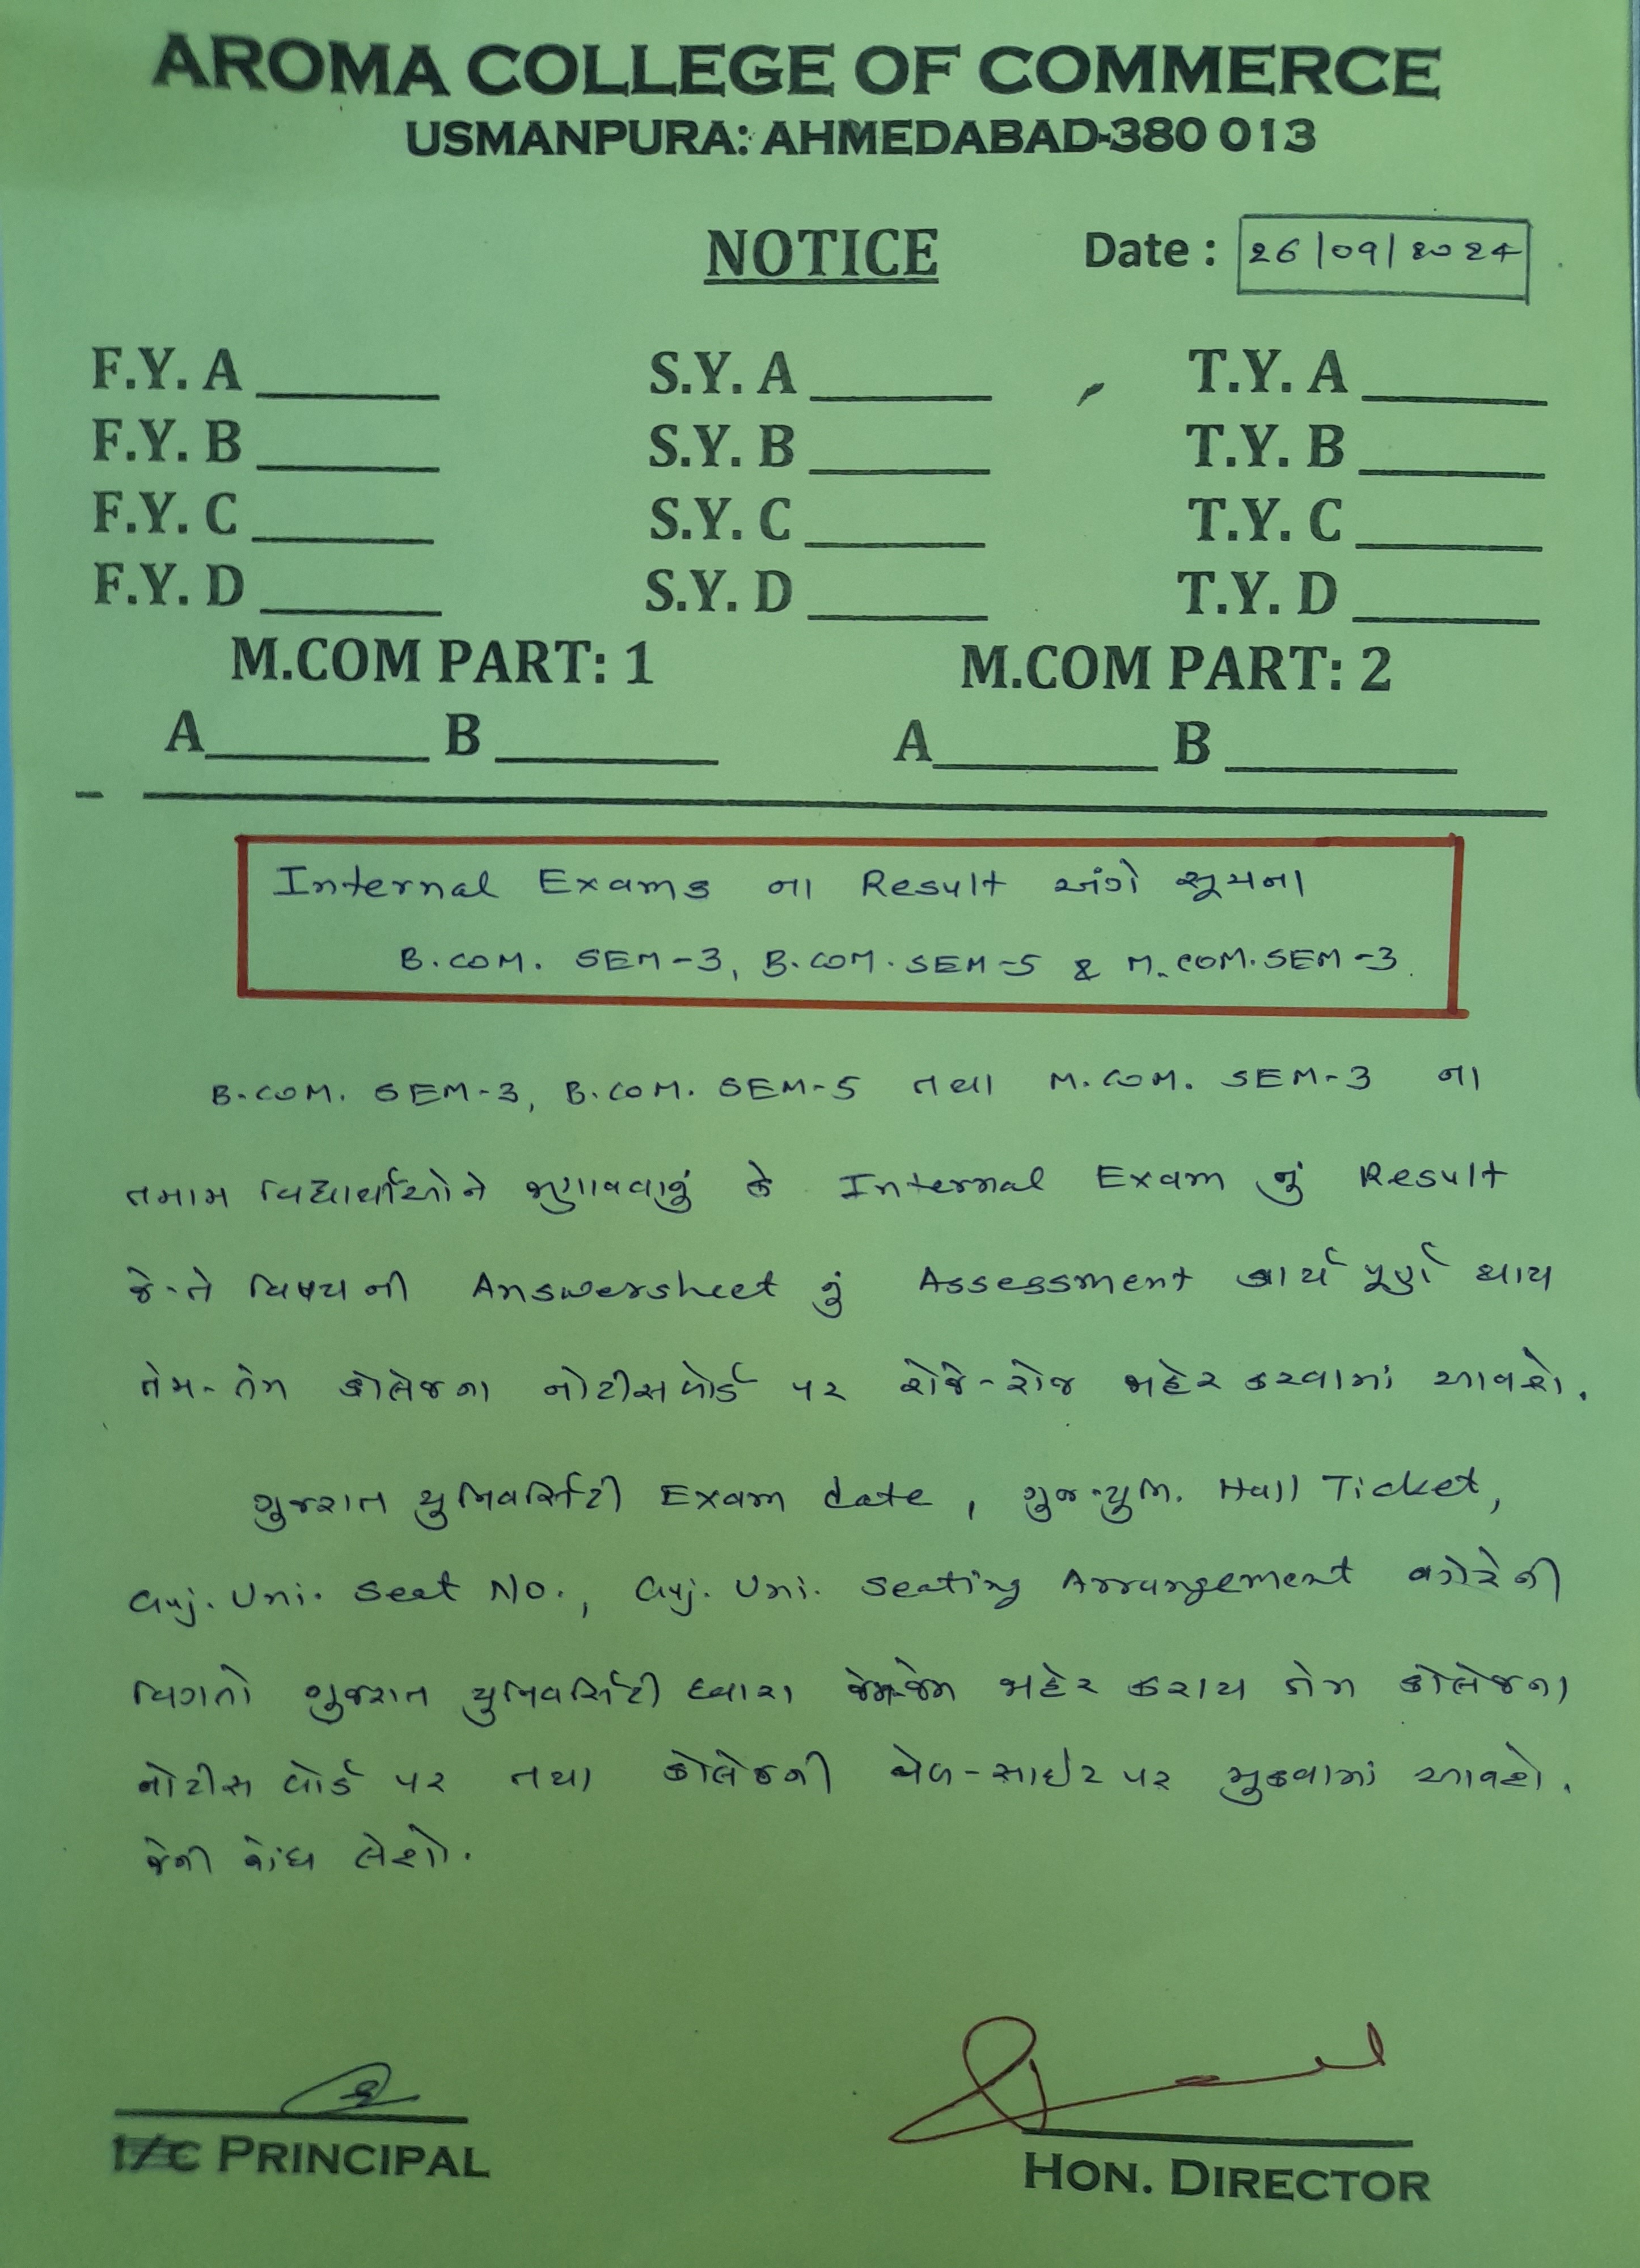 AROMA COLLEGE OF COMMERCE
USMANPURA: AHMEDABAD-380 013
NOTICE Date : 26/09/2024
F.Y. A ______ S.Y. A ______ T.Y. A ______
F.Y. B ______ S.Y. B ______ T.Y. B ______
F.Y. C ______ S.Y. C ______ T.Y. C ______
F.Y. D ______ S.Y. D ______ T.Y. D ______
M.COM PART: 1 M.COM PART: 2
A______ B ______ A______ B ______
Internal Exams ના Result અંગે સૂચના
B.COM. SEM-3, B.COM. SEM-5 & M.COM. SEM-3.
B.COM. SEM-3, B.COM. SEM-5 તથા M.COM. SEM-3 ના
તમામ વિદ્યાર્થીઓને જણાવવાનું કે Internal Exam નું Result
જે-તે વિષયની Answersheet નું Assessment કાર્ય પૂર્ણ થાય
તેમ-તેમ કોલેજના નોટીસબોર્ડ પર રોજે-રોજ જાહેર કરવામાં આવશે.
ગુજરાત યુનિવર્સિટી Exam date, ગુજ.યુનિ. Hall Ticket,
Guj. Uni. Seat No., Guj. Uni. Seating Arrangement વગેરેની
વિગતો ગુજરાત યુનિવર્સિટી ધ્વારા જેમ-જેમ જાહેર કરાય તેમ કોલેજના
નોટીસ બોર્ડ પર તથા કોલેજની વેબ-સાઈટ પર મુકવામાં આવશે.
જેની નોંધ લેશો.
I/C PRINCIPAL HON. DIRECTOR